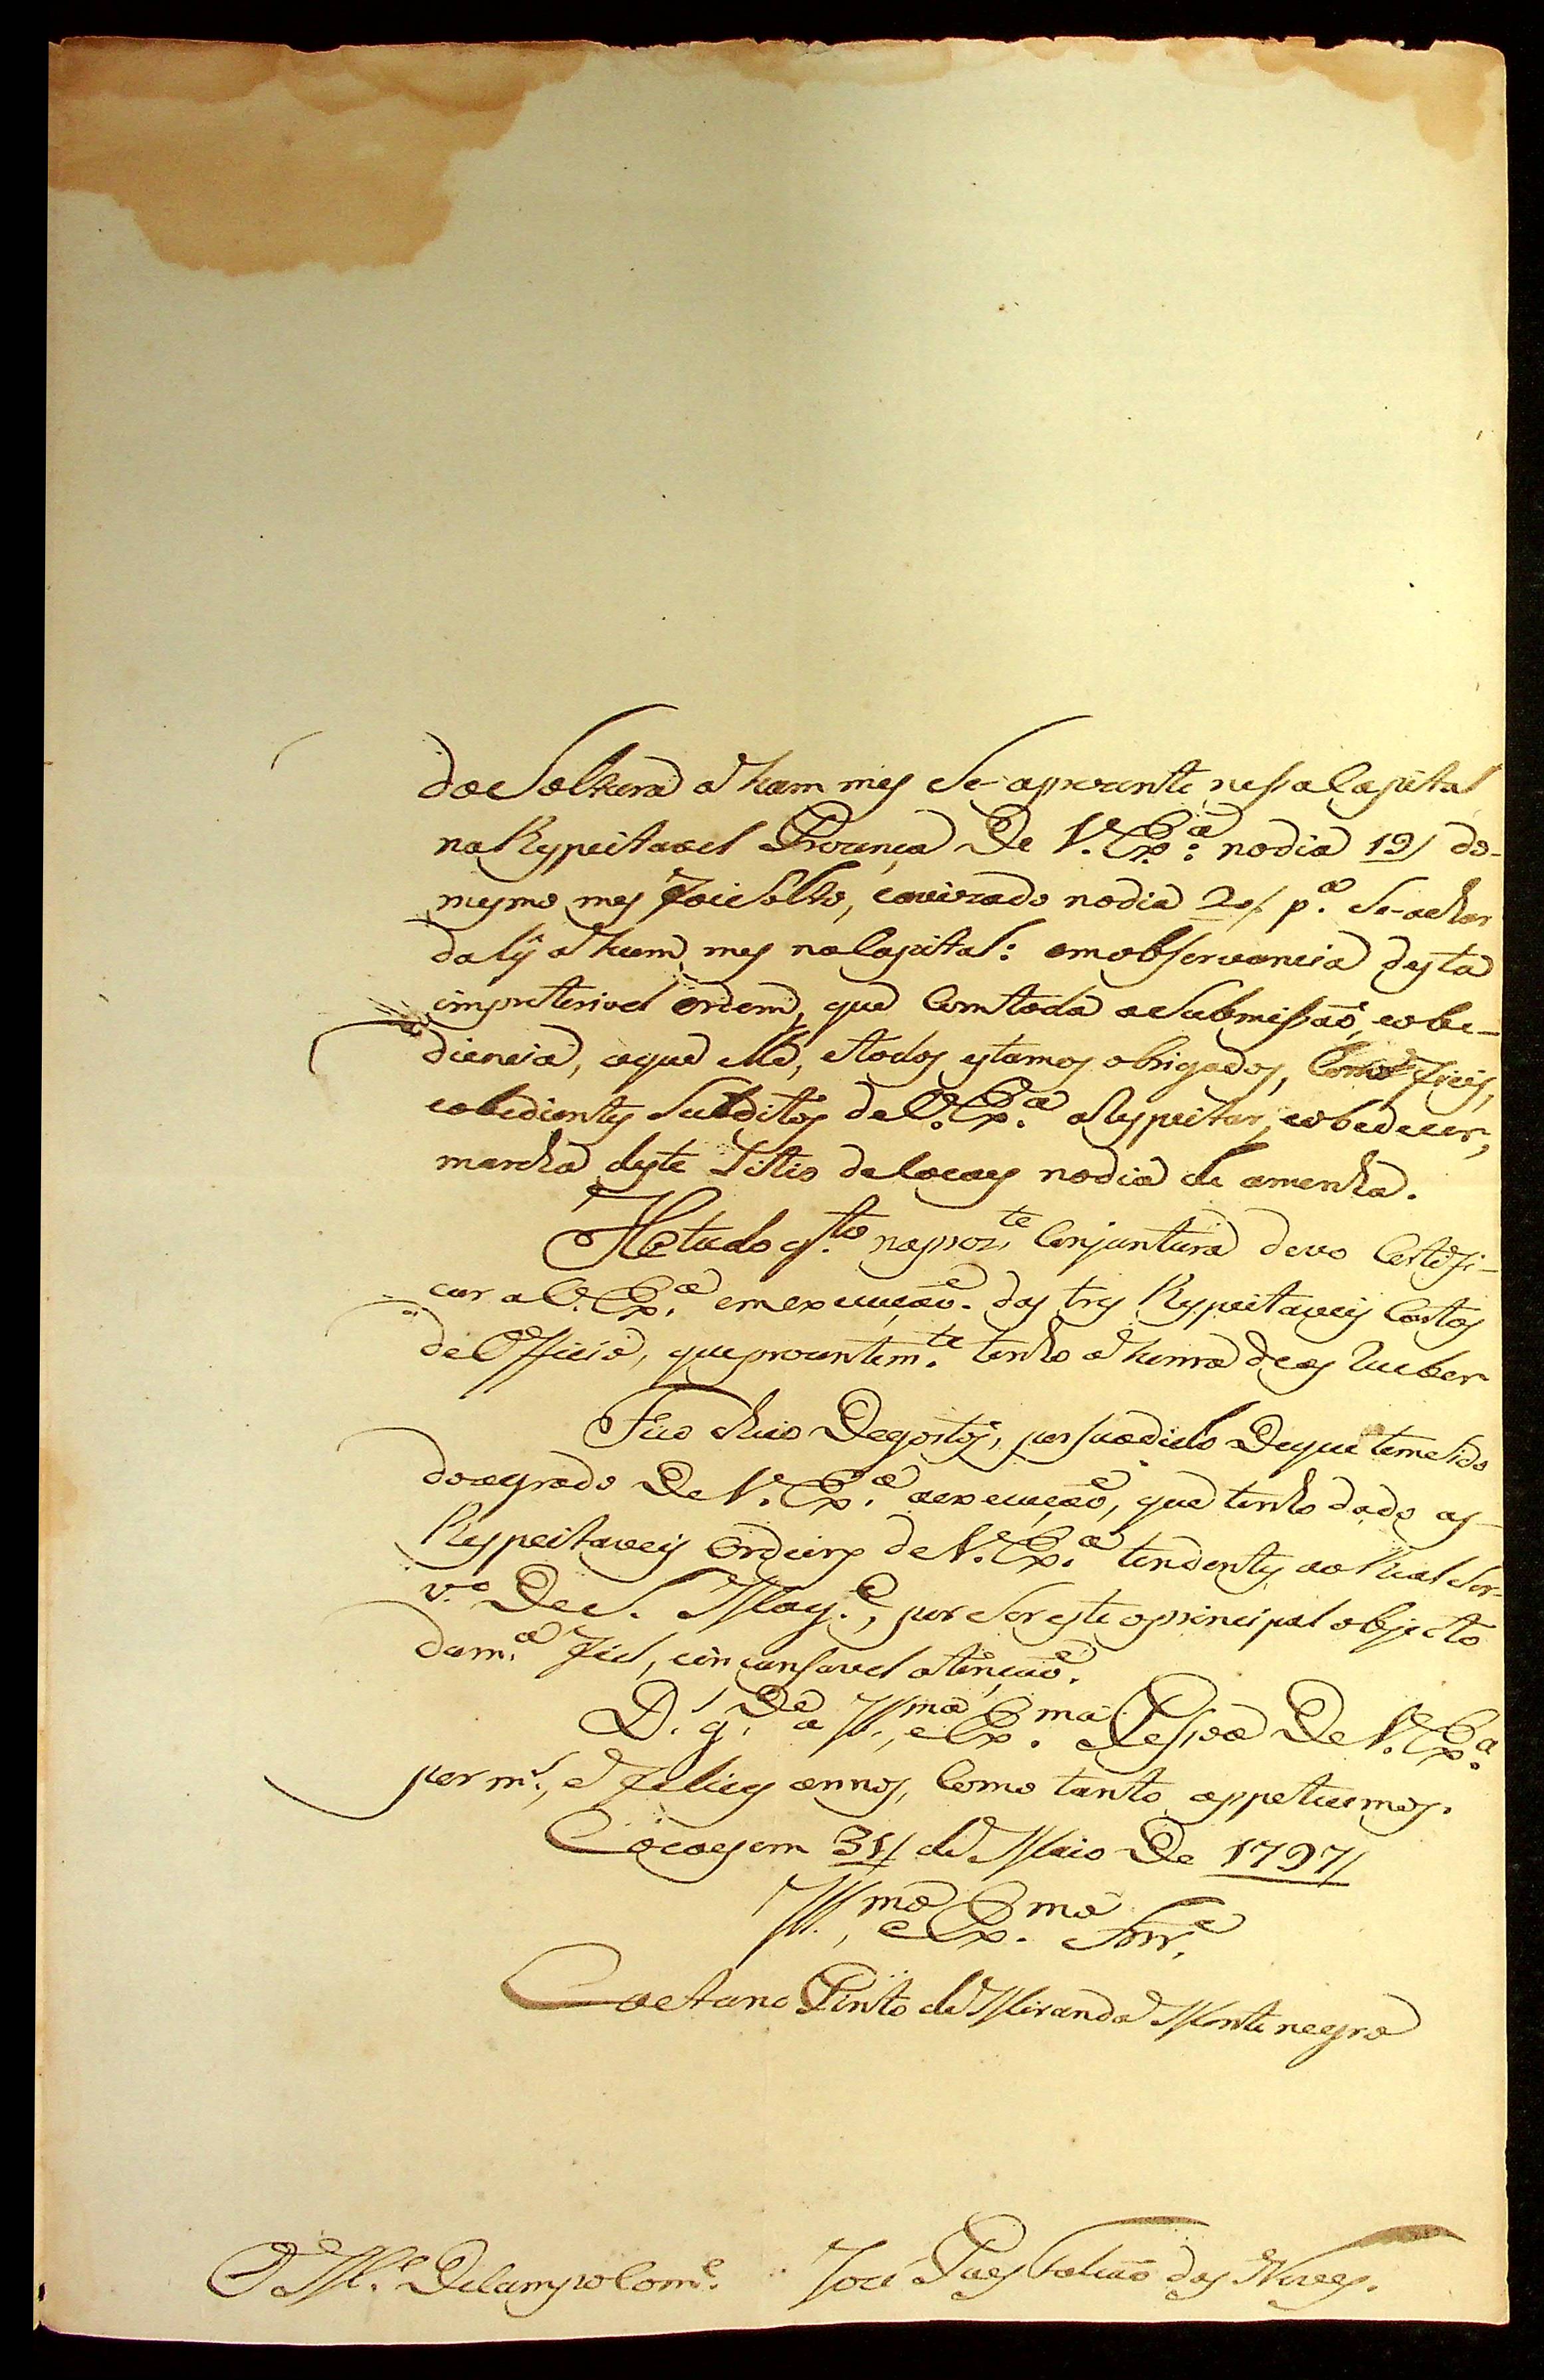 da Solteira a hum mes Se-aprezente nessa Capital
na Respeitavel Prezença De V. Ex.ª: no dia 19/ do-
mesmo mes foi solto, e avizado no dia 20/ p.ª Se-achar
dalý a hum mes na Capital: em observancia desta
impreterivel ordem, que Com toda a Submissaõ, e obe-
diencia, aque elle, e todos estamos obrigados, Como fieis,
e obedientes Subditos de V. Ex.ª a Respeitar, e obedecer,
marcha deste Sitio de Cocaes no dia de amenhã.
He tudo q.to na prez.te Conjuntura devo Certifi-
car a V. Ex.ª em execuçaõ. das tres Respeitaveis Cartas
de Officio, que prezentem.te tenho a honra de as receber
Fico cheio De gosto, persuadido De que tem sido
do agrado De V. Ex.ª a execuçaõ, que tenho dado as-
Respeitaveis Ordeins de V. Ex.ª tendentes ao Real Ser-
v.º De S. Mag.e, por Ser este o principal objecto
da m.ª fiel, e incansavel atençaõ.
D.s g.De a Ill.ma, e Ex.ma Pessoa De V. Ex.ª
por m.s, e felices annos, Como tanto appetecemos.
Cocaes em 31/ de Maio De 1797/
Ill.mo, e Ex.mo Snr.
Caetano Pinto de Miranda Montenegro
O M.e De Campo Com.e José Paes Falcaõ das Neves.